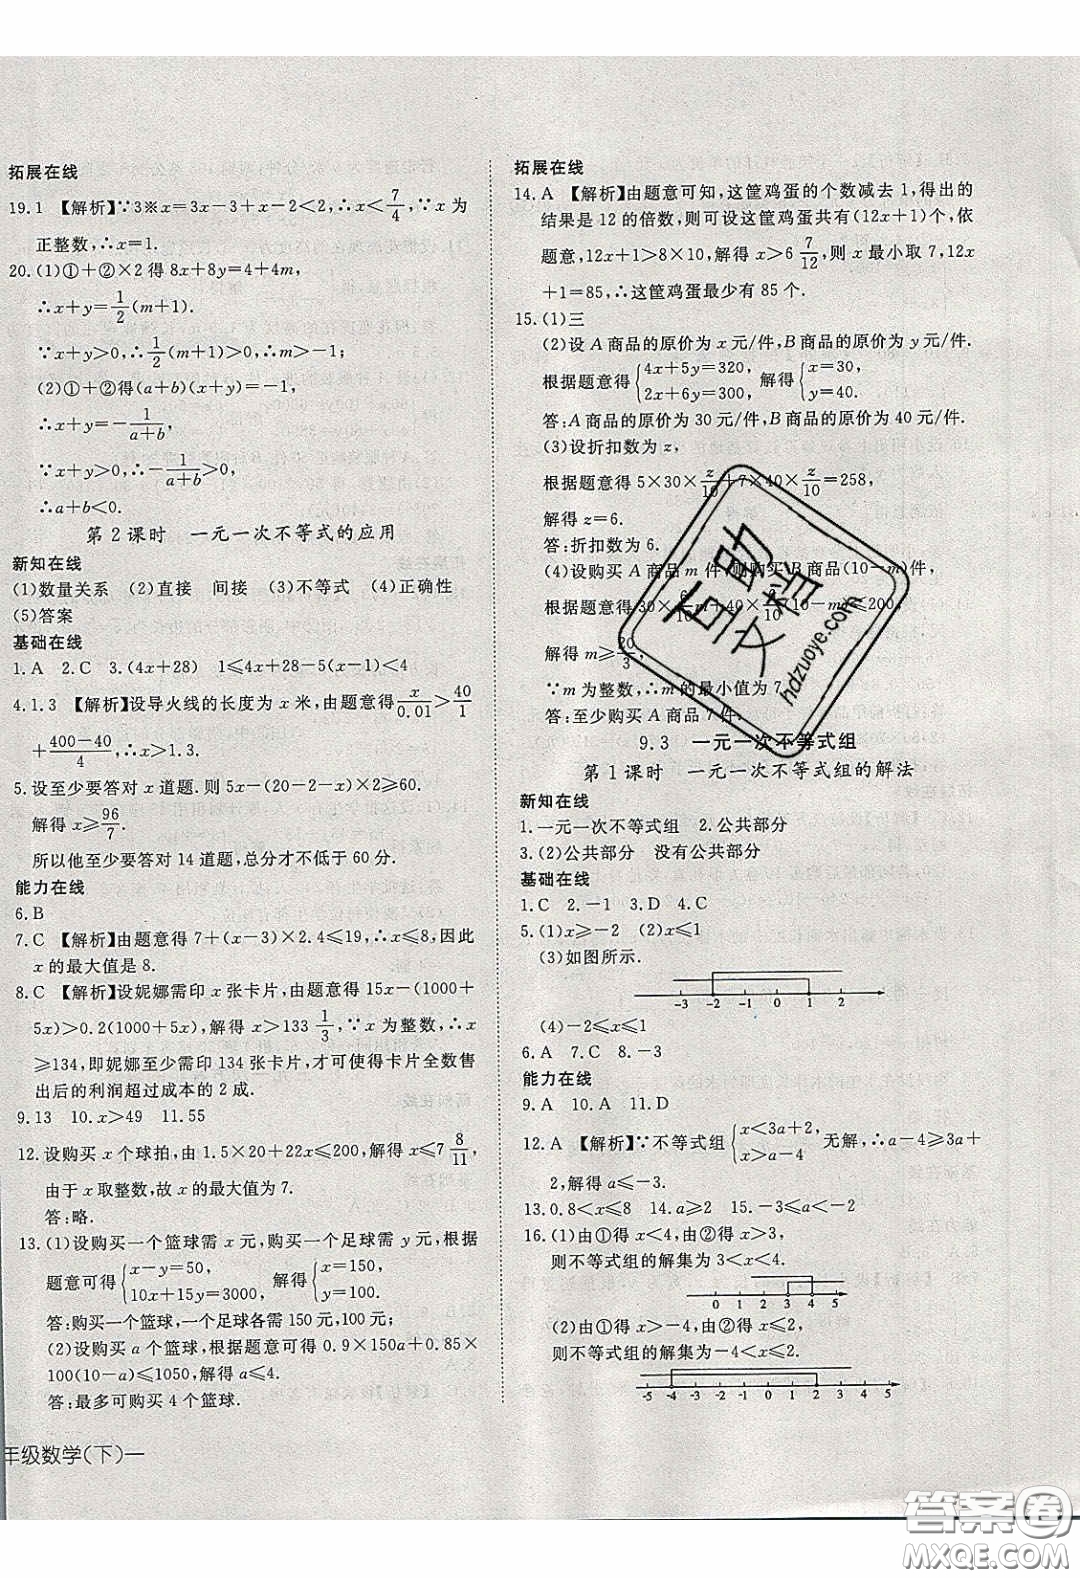 拓展在线
19.1 【解析】∵3※x=3x-3+x-2<2,∴x<7/4,∵x为
正整数,∴x=1.
20.(1)①+②×2得8x+8y=4+4m,
∴x+y=1/2(m+1).
∵x+y>0,∴1/2(m+1)>0,∴m>-1;
(2)①+②得(a+b)(x+y)=-1,
∴x+y=-1/(a+b).
∵x+y>0,∴-1/(a+b)>0,
∴a+b<0.
第2课时 一元一次不等式的应用
新知在线
(1)数量关系 (2)直接 间接 (3)不等式 (4)正确性
(5)答案
基础在线
1.A 2.C 3.(4x+28) 1≤4x+28-5(x-1)<4
4.1.3 【解析】设导火线的长度为x米,由题意得x/0.01>40/1
+(400-40)/4,∴x>1.3.
5.设至少要答对x道题. 5x-(20-2-x)×2≥60.
解得x≥96/7.
所以他至少要答对14道题,总分才不低于60分.
能力在线
6.B
7.C 【解析】由题意得7+(x-3)×2.4≤19,∴x≤8,因此
x的最大值是8.
8.C 【解析】设妮娜需印x张卡片,由题意得15x-(1000+
5x)>0.2(1000+5x),解得x>133 1/3,∵x为整数,∴x
≥134,即妮娜至少需印134张卡片,才可使得卡片全数售
出后的利润超过成本的2成.
9.13 10.x>49 11.55
12.设购买x个球拍,由1.5×20+22x≤200,解得x≤7 8/11,
由于x取整数,故x的最大值为7.
答:略.
13.(1)设购买一个篮球需x元,购买一个足球需y元,根据
题意可得{x-y=50, 10x+15y=3000, 解得{x=150, y=100.
答:购买一个篮球,一个足球各需150元,100元;
(2)设购买a个篮球,根据题意可得0.9×150a+0.85×
100(10-a)≤1050,解得a≤4.
答:最多可购买4个篮球.
年级数学(下)—
拓展在线
14.A 【解析】由题意可知,这筐鸡蛋的个数减去1,得出的
结果是12的倍数,则可设这筐鸡蛋共有(12x+1)个,依
题意,12x+1>8×10,解得x>6 7/12,则x最小取7,12x
+1=85,∴这筐鸡蛋最少有85个.
15.(1)三
(2)设A商品的原价为x元/件,B商品的原价为y元/件.
根据题意得{4x+5y=320, 2x+6y=300, 解得{x=30, y=40.
答:A商品的原价为30元/件,B商品的原价为40元/件.
(3)设折扣数为z,
根据题意得5×30×z/10+7×40×z/10=258,
解得z=6.
答:折扣数为6.
(4)设购买A商品m件,则购买B商品(10-m)件,
根据题意得30×6/10m+40×6/10(10-m)≤200,
解得m≥20/3,
∵m为整数,∴m的最小值为7.
答:至少购买A商品7件.
9.3 一元一次不等式组
第1课时 一元一次不等式组的解法
新知在线
1.一元一次不等式组 2.公共部分
3.(2)公共部分 没有公共部分
基础在线
1.C 2.-1 3.D 4.C
5.(1)x≥-2 (2)x≤1
(3)如图所示.
-3 -2 -1 0 1 2
(4)-2≤x≤1
6.A 7.C 8.-3
能力在线
9.A 10.A 11.D
12.A 【解析】∵不等式组{x<3a+2, x>a-4 无解,∴a-4≥3a+
2,解得a≤-3.
13.0.8<x≤8 14.a≥2 15.-3≤x<2
16.(1)由①得x<4,由②得x>3,
则不等式组的解集为3<x<4.
0 1 2 3 4 5
(2)由①得x>-4,由②得x≤2,
则不等式组的解集为-4<x≤2.
-5 -4 -3 -2 -1 0 1 2 3 4 5
百助
文档
hdzuoye.com
答案圈
MXQE.COM